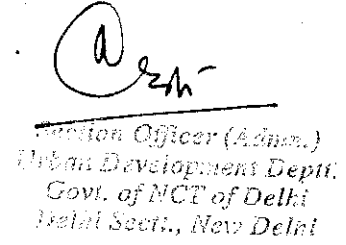 Section Officer (Admn.)
Urban Development Deptt.
Govt. of NCT of Delhi
Delhi Sectt., New Delhi